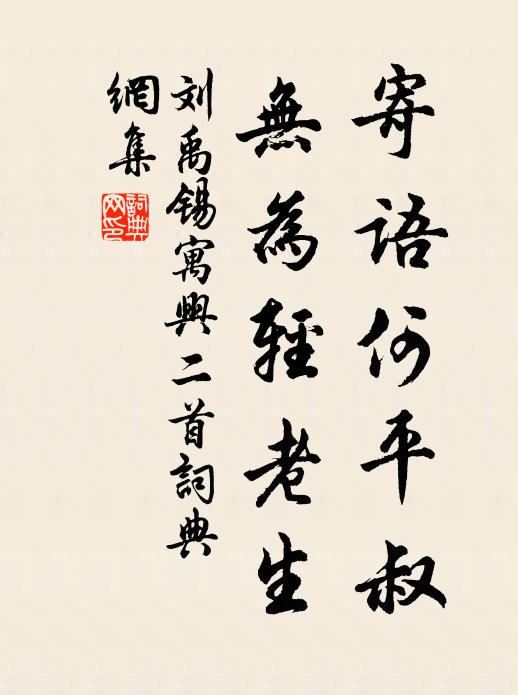 寄語何平叔
無為輕老生
刘禹锡寓興二首詞典
網集
詞典
网印